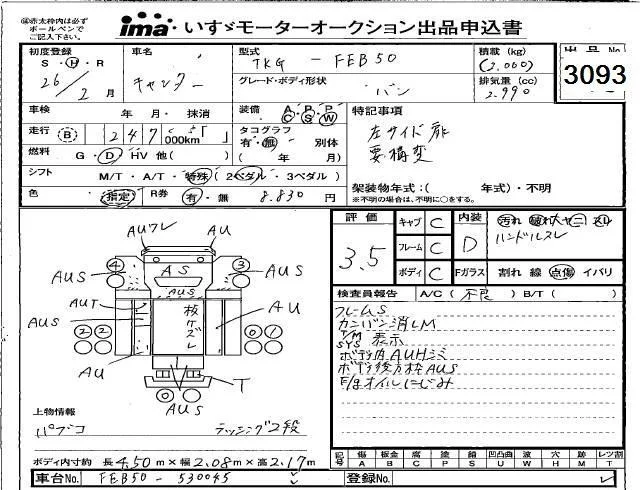 ※赤太枠内は必ず
ボールペンで
ご記入下さい。
ima いすゞモーターオークション出品申込書
初度登録 車名 型式 積載 (kg) 出品No
S・H・R キャンター TKG - FEB50 (2,000) 3093
26年 2月 グレード・ボディ形状 バン 排気量 (cc) 2,990
車検 年 月・抹消 装備 A/C P/S P/W 特記事項
走行 B 247,000km タコグラフ 有・無 別体 左サイド扉
燃料 G・D・HV 他( ) ( 年 月) 要構変
シフト M/T・A/T・特殊(2ペダル・3ペダル) 架装物年式:( 年式)・不明
色 指定 R券 有・無 8,830円 ※不明の場合は、不明に○をする。
評価 3.5
キャブ C 内装 D 汚れ 破れ 大 ヤニ スレ
フレーム C ハンドルスレ
ボディ C Fガラス 割れ 線 点傷 イバリ
検査員報告 A/C( 不良 ) B/T( )
フレームS
カンバン消しM
T/M SYS 表示
ボデ内AUHシミ
ボデ後方枠AUS
E/gオイルにじみ
AUフレ AU
4 3
AUS AS AUS
AUS
AUT 板ケズレ AU
AUS
2 2 0 1
AU T
0 0
AUS
上物情報
パブコ ラッシング2段
ボディ内寸約 長 4.50 m × 幅 2.08 m × 高 2.17 m
記号 傷A 板金B 腐C 塗P 錆S 凹凸曲U 波W 穴H 跡M レツ割T
車台No. FEB50 - 530045 登録No.